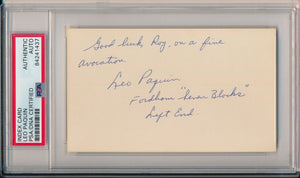 Good luck, Roy, on a fine
avocation
Leo Paquin
Fordham "Seven Blocks"
Left End
INDEX CARD
LEO PAQUIN
PSA/DNA CERTIFIED
AUTHENTIC
AUTO
84241437
PSA